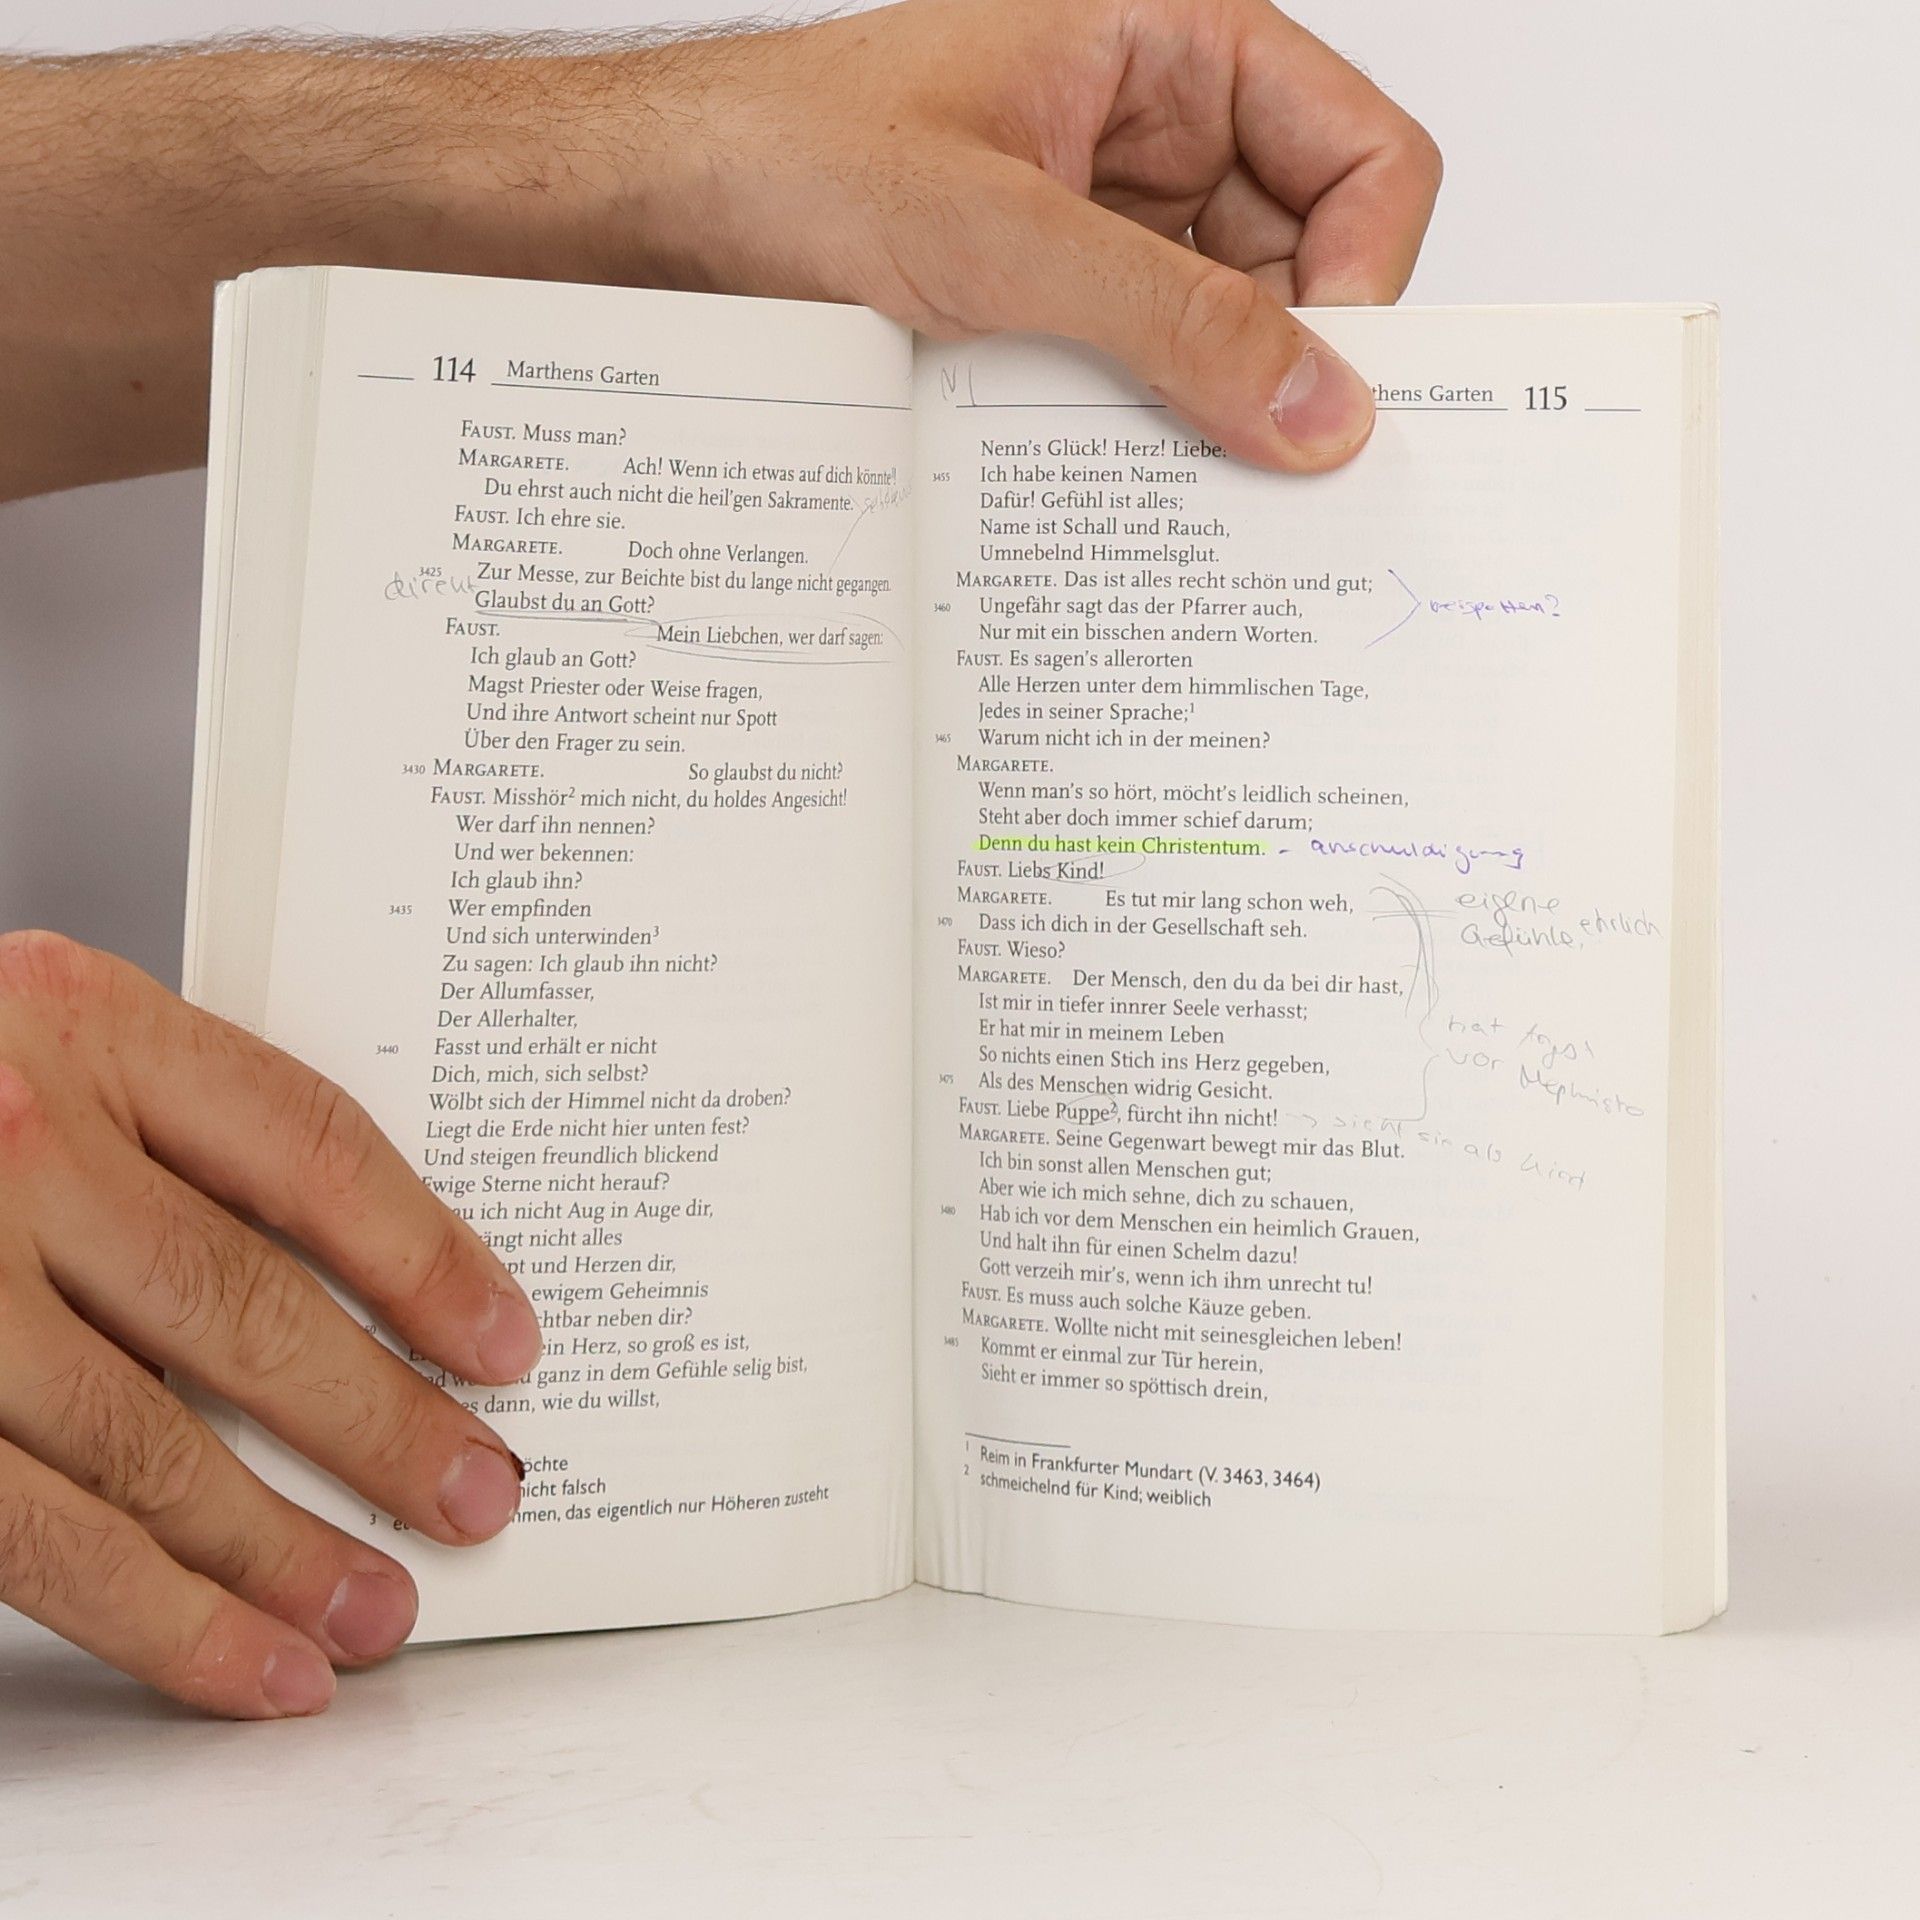 114 Marthens Garten
FAUST. Muss man?
MARGARETE. Ach! Wenn ich etwas auf dich könnte¹!
Du ehrst auch nicht die heil'gen Sakramente.
FAUST. Ich ehre sie.
MARGARETE. Doch ohne Verlangen.
3425 Zur Messe, zur Beichte bist du lange nicht gegangen.
direkt
Glaubst du an Gott?
FAUST. Mein Liebchen, wer darf sagen:
Ich glaub an Gott?
Magst Priester oder Weise fragen,
Und ihre Antwort scheint nur Spott
Über den Frager zu sein.
3430 MARGARETE. So glaubst du nicht?
FAUST. Misshör² mich nicht, du holdes Angesicht!
Wer darf ihn nennen?
Und wer bekennen:
Ich glaub ihn?
3435 Wer empfinden
Und sich unterwinden³
Zu sagen: Ich glaub ihn nicht?
Der Allumfasser,
Der Allerhalter,
3440 Fasst und erhält er nicht
Dich, mich, sich selbst?
Wölbt sich der Himmel nicht da droben?
Liegt die Erde nicht hier unten fest?
Und steigen freundlich blickend
Ewige Sterne nicht herauf?
ich nicht Aug in Auge dir,
nicht alles
und Herzen dir,
ewigem Geheimnis
neben dir?
Herz, so groß es ist,
ganz in dem Gefühle selig bist,
dann, wie du willst,
nicht falsch
3 das eigentlich nur Höheren zusteht
Garten 115
Nenn's Glück! Herz! Liebe!
3455 Ich habe keinen Namen
Dafür! Gefühl ist alles;
Name ist Schall und Rauch,
Umnebelnd Himmelsglut.
MARGARETE. Das ist alles recht schön und gut;
3460 Ungefähr sagt das der Pfarrer auch, verspotten?
Nur mit ein bisschen andern Worten.
FAUST. Es sagen's allerorten
Alle Herzen unter dem himmlischen Tage,
Jedes in seiner Sprache;¹
3465 Warum nicht ich in der meinen?
MARGARETE.
Wenn man's so hört, möcht's leidlich scheinen,
Steht aber doch immer schief darum;
Denn du hast kein Christentum. - anschuldigung
FAUST. Liebs Kind!
MARGARETE. Es tut mir lang schon weh, eigene
3470 Dass ich dich in der Gesellschaft seh. Gefühle, ehrlich
FAUST. Wieso?
MARGARETE. Der Mensch, den du da bei dir hast,
Ist mir in tiefer innrer Seele verhasst;
Er hat mir in meinem Leben hat Angst
So nichts einen Stich ins Herz gegeben, vor Mephisto
3475 Als des Menschen widrig Gesicht.
FAUST. Liebe Puppe², fürcht ihn nicht! → sieht sie als Kind
MARGARETE. Seine Gegenwart bewegt mir das Blut.
Ich bin sonst allen Menschen gut;
Aber wie ich mich sehne, dich zu schauen,
3480 Hab ich vor dem Menschen ein heimlich Grauen,
Und halt ihn für einen Schelm dazu!
Gott verzeih mir's, wenn ich ihm unrecht tu!
FAUST. Es muss auch solche Käuze geben.
MARGARETE. Wollte nicht mit seinesgleichen leben!
3485 Kommt er einmal zur Tür herein,
Sieht er immer so spöttisch drein,
1 Reim in Frankfurter Mundart (V. 3463, 3464)
2 schmeichelnd für Kind; weiblich